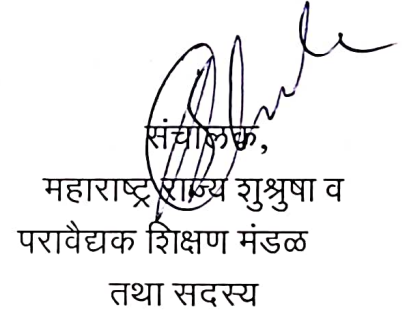 संचालक,
महाराष्ट्र राज्य शुश्रुषा व
परावैद्यक शिक्षण मंडळ
तथा सदस्य